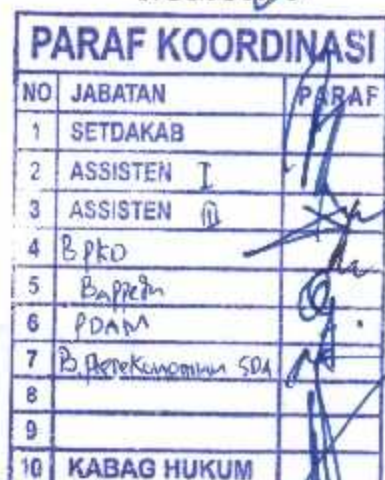 PARAF KOORDINASI
NO JABATAN PARAF
1 SETDAKAB
2 ASSISTEN I
3 ASSISTEN III
4 BPKD
5
6 PDAM
7 B. Perekonomian SDA
8
9
10 KABAG HUKUM